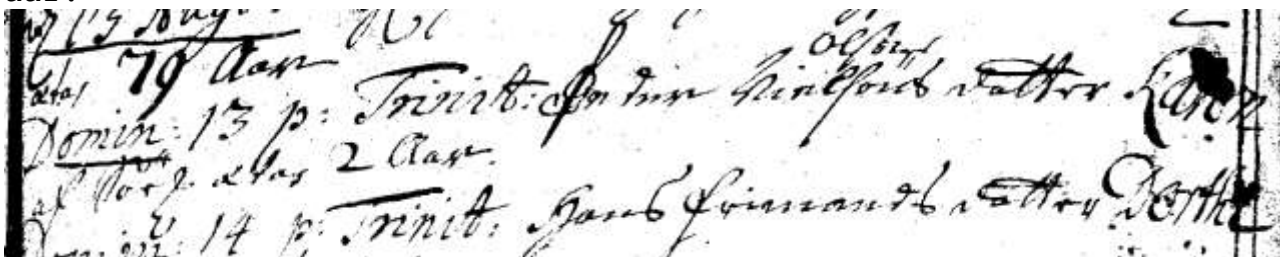 ætas 79 Aar
Olsens
Domin: 13 p: Trinit: Peder Nielsens datter Karen
af ætas 2 Aar.
14 p: Trinit: Hans Frimands datter Dorthe